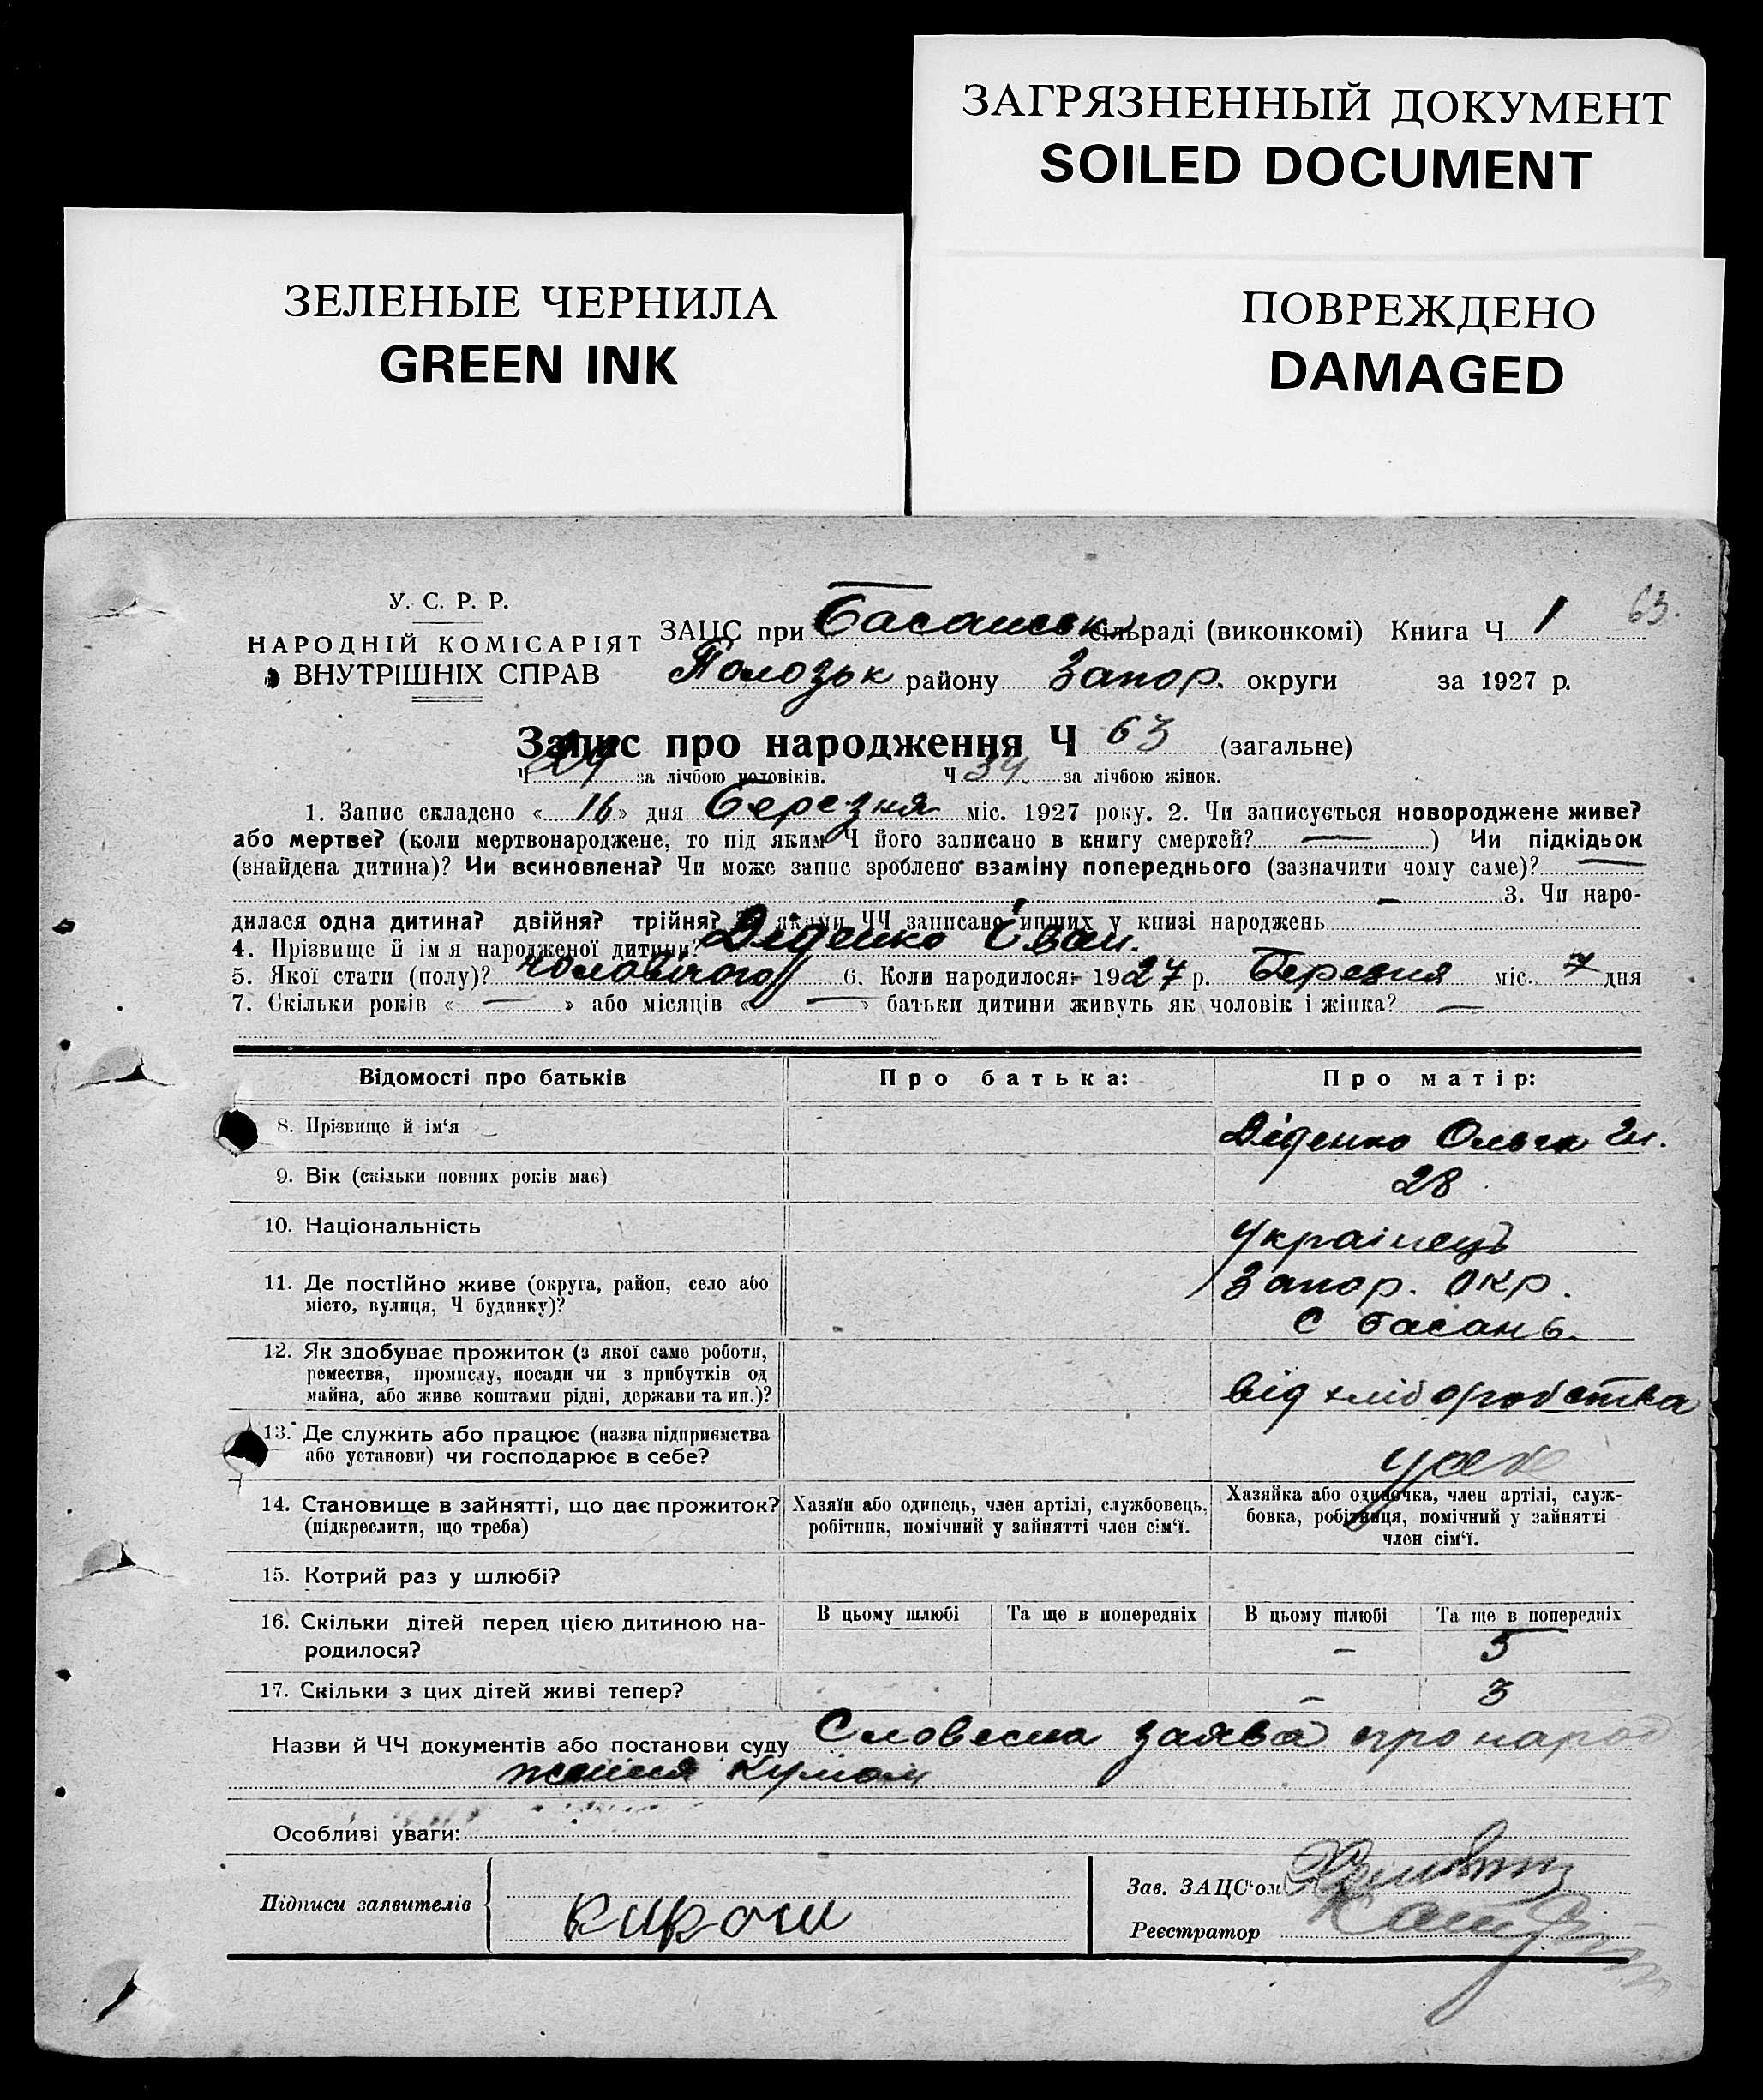 ЗАГРЯЗНЕННЫЙ ДОКУМЕНТ
SOILED DOCUMENT
ЗЕЛЕНЫЕ ЧЕРНИЛА
GREEN INK
ПОВРЕЖДЕНО
DAMAGED
63.
У. С. Р. Р.
НАРОДНІЙ КОМІСАРІЯТ
ВНУТРІШНІХ СПРАВ
ЗАЦС при Басанськ сільраді (виконкомі) Книга Ч 1
Полозьк району Запор. округи за 1927 р.
Запис про народження Ч 63 (загальне)
Ч 29 за лічбою чоловіків. Ч 34 за лічбою жінок.
1. Запис складено « 16 » дня Березня міс. 1927 року. 2. Чи записується новороджене живе?
або мертве? (коли мертвонароджене, то під яким Ч його записано в книгу смертей? — ) Чи підкідьок
(знайдена дитина)? Чи всиновлена? Чи може запис зроблено взаміну попереднього (зазначити чому саме)? —
— 3. Чи наро-
дилася одна дитина? двійня? трійня? якими ЧЧ записано инших у книзі народжень
4. Прізвище й ім я народженої дитини? Діденко Іван.
5. Якої стати (полу)? чоловічого 6. Коли народилося:- 1927 р. Березня міс. 7 дня
7. Скільки років « — » або місяців « — » батьки дитини живуть як чоловік і жінка? —
Відомості про батьків Про батька: Про матір:
8. Прізвище й ім'я Діденко Ольга
9. Вік (скільки повних років має) 28
10. Національність Українець
11. Де постійно живе (округа, район, село або
місто, вулиця, Ч будинку)?
Запор. Окр.
с Басань.
12. Як здобуває прожиток (з якої саме роботи,
ремества, промислу, посади чи з прибутків од
майна, або живе коштами рідні, держави та ин.)?
від хліборобства
13. Де служить або працює (назва підприємства
або установи) чи господарює в себе?
14. Становище в зайнятті, що дає прожиток?
(підкреслити, що треба)
Хазяїн або одинець, член артілі, службовець,
робітник, помічний у зайнятті член сім'ї.
Хазяйка або одиночка, член артілі, служ-
бовка, робітниця, помічний у зайнятті
член сім'ї.
15. Котрий раз у шлюбі?
16. Скільки дітей перед цією дитиною на-
родилося?
В цьому шлюбі Та ще в попередніх В цьому шлюбі Та ще в попередніх
– 5
17. Скільки з цих дітей живі тепер? – 3
Назви й ЧЧ документів або постанови суду Словесна заява про народ
ження
Особливі уваги:
Підписи заявителів
Зав. ЗАЦС'ом
Реєстратор